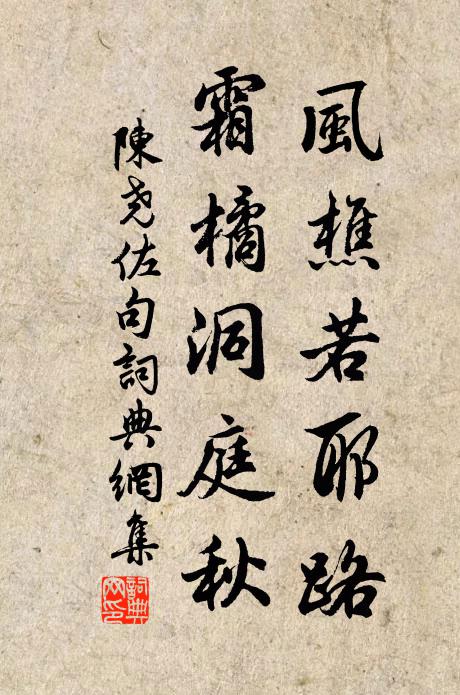 風樵若耶路
霜橘洞庭秋
陳尧佐句詞典網集
詞典网印